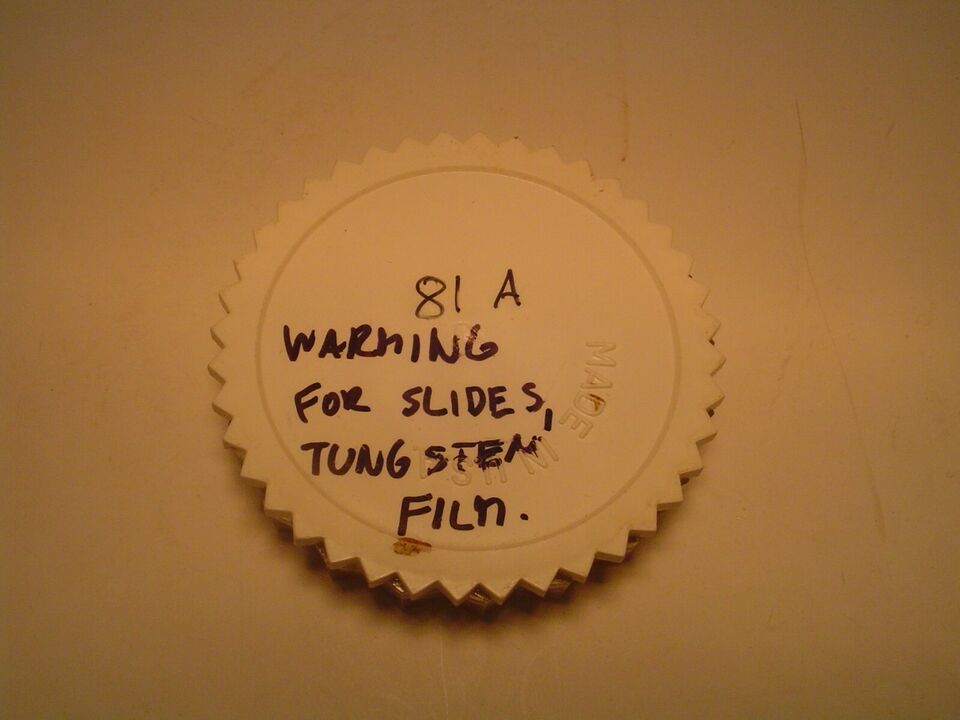 81 A
WARMING
FOR SLIDES,
TUNGSTEN
FILM.
MADE IN U.S.A